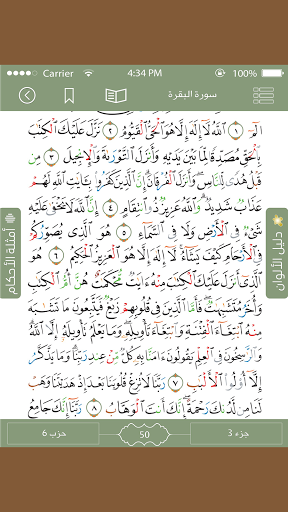 Carrier 4:34 PM 100%
سورة البقرة
الٓمٓ ١ ٱللَّهُ لَآ إِلَٰهَ إِلَّا هُوَ ٱلۡحَيُّ ٱلۡقَيُّومُ ٢ نَزَّلَ عَلَيۡكَ ٱلۡكِتَٰبَ
بِٱلۡحَقِّ مُصَدِّقٗا لِّمَا بَيۡنَ يَدَيۡهِ وَأَنزَلَ ٱلتَّوۡرَىٰةَ وَٱلۡإِنجِيلَ ٣
مِن قَبۡلُ هُدٗى لِّلنَّاسِ وَأَنزَلَ ٱلۡفُرۡقَانَۗ إِنَّ ٱلَّذِينَ كَفَرُواْ بِـَٔايَٰتِ ٱللَّهِ لَهُمۡ
عَذَابٞ شَدِيدٞۗ وَٱللَّهُ عَزِيزٞ ذُو ٱنتِقَامٍ ٤ إِنَّ ٱللَّهَ لَا يَخۡفَىٰ عَلَيۡهِ
شَيۡءٞ فِي ٱلۡأَرۡضِ وَلَا فِي ٱلسَّمَآءِ ٥ هُوَ ٱلَّذِي يُصَوِّرُكُمۡ
فِي ٱلۡأَرۡحَامِ كَيۡفَ يَشَآءُۚ لَآ إِلَٰهَ إِلَّا هُوَ ٱلۡعَزِيزُ ٱلۡحَكِيمُ ٦
هُوَ ٱلَّذِيٓ أَنزَلَ عَلَيۡكَ ٱلۡكِتَٰبَ مِنۡهُ ءَايَٰتٞ مُّحۡكَمَٰتٌ هُنَّ أُمُّ ٱلۡكِتَٰبِ
وَأُخَرُ مُتَشَٰبِهَٰتٞۖ فَأَمَّا ٱلَّذِينَ فِي قُلُوبِهِمۡ زَيۡغٞ فَيَتَّبِعُونَ مَا تَشَٰبَهَ
مِنۡهُ ٱبۡتِغَآءَ ٱلۡفِتۡنَةِ وَٱبۡتِغَآءَ تَأۡوِيلِهِۦۖ وَمَا يَعۡلَمُ تَأۡوِيلَهُۥٓ إِلَّا ٱللَّهُۗ
وَٱلرَّٰسِخُونَ فِي ٱلۡعِلۡمِ يَقُولُونَ ءَامَنَّا بِهِۦ كُلّٞ مِّنۡ عِندِ رَبِّنَاۗ وَمَا يَذَّكَّرُ
إِلَّآ أُوْلُواْ ٱلۡأَلۡبَٰبِ ٧ رَبَّنَا لَا تُزِغۡ قُلُوبَنَا بَعۡدَ إِذۡ هَدَيۡتَنَا وَهَبۡ
لَنَا مِن لَّدُنكَ رَحۡمَةًۚ إِنَّكَ أَنتَ ٱلۡوَهَّابُ ٨ رَبَّنَآ إِنَّكَ جَامِعُ
دليل الألوان
أمثلة الأحكام
جزء 3
50
حزب 6